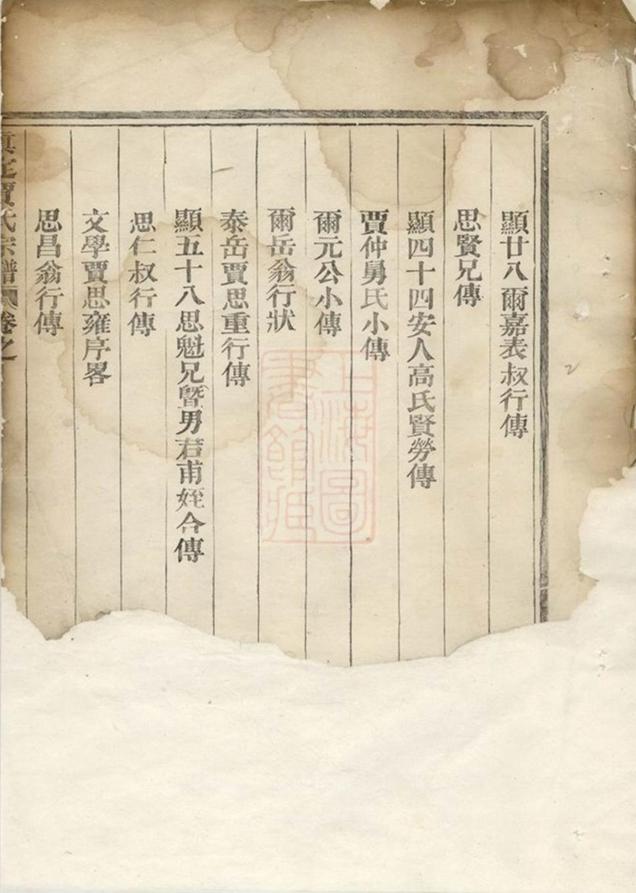 顯廿八爾嘉表叔行傳
思賢兄傳
顯四十四安人高氏賢勞傳
賈仲舅氏小傳
爾元公小傳
爾岳翁行狀
泰岳賈思重行傳
顯五十八思魁兄暨男君甫姪合傳
思仁叔行傳
文學賈思雍序畧
思昌翁行傳
賈氏宗譜 卷之
上海圖書館藏